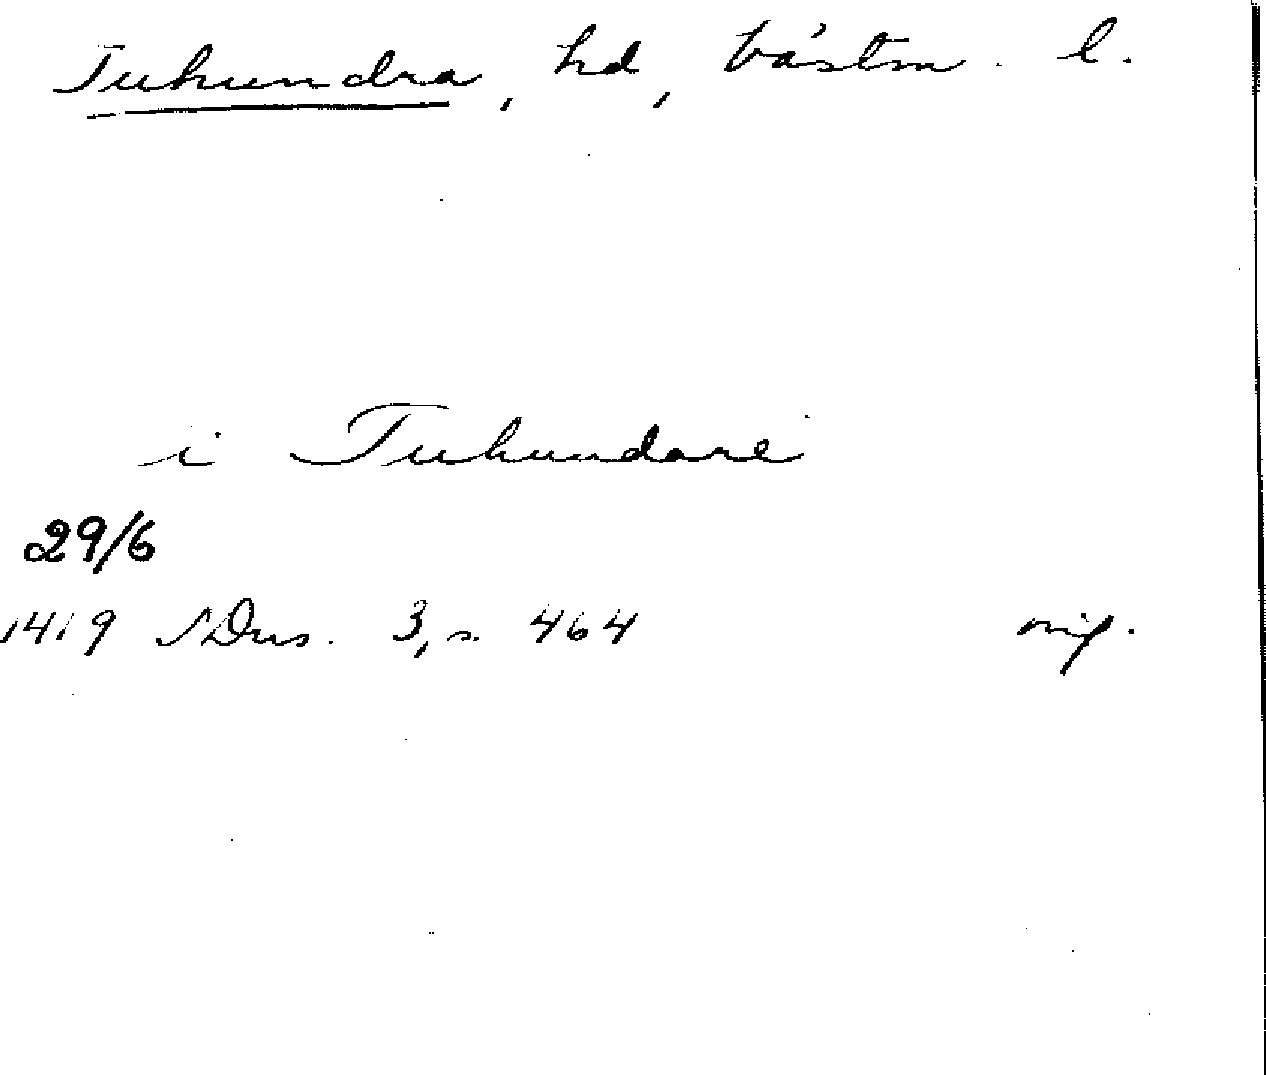 Tuhundra, hd, Västm. l.
i Tuhundare
29/6
1419 SDns. 3, s. 464 orig.